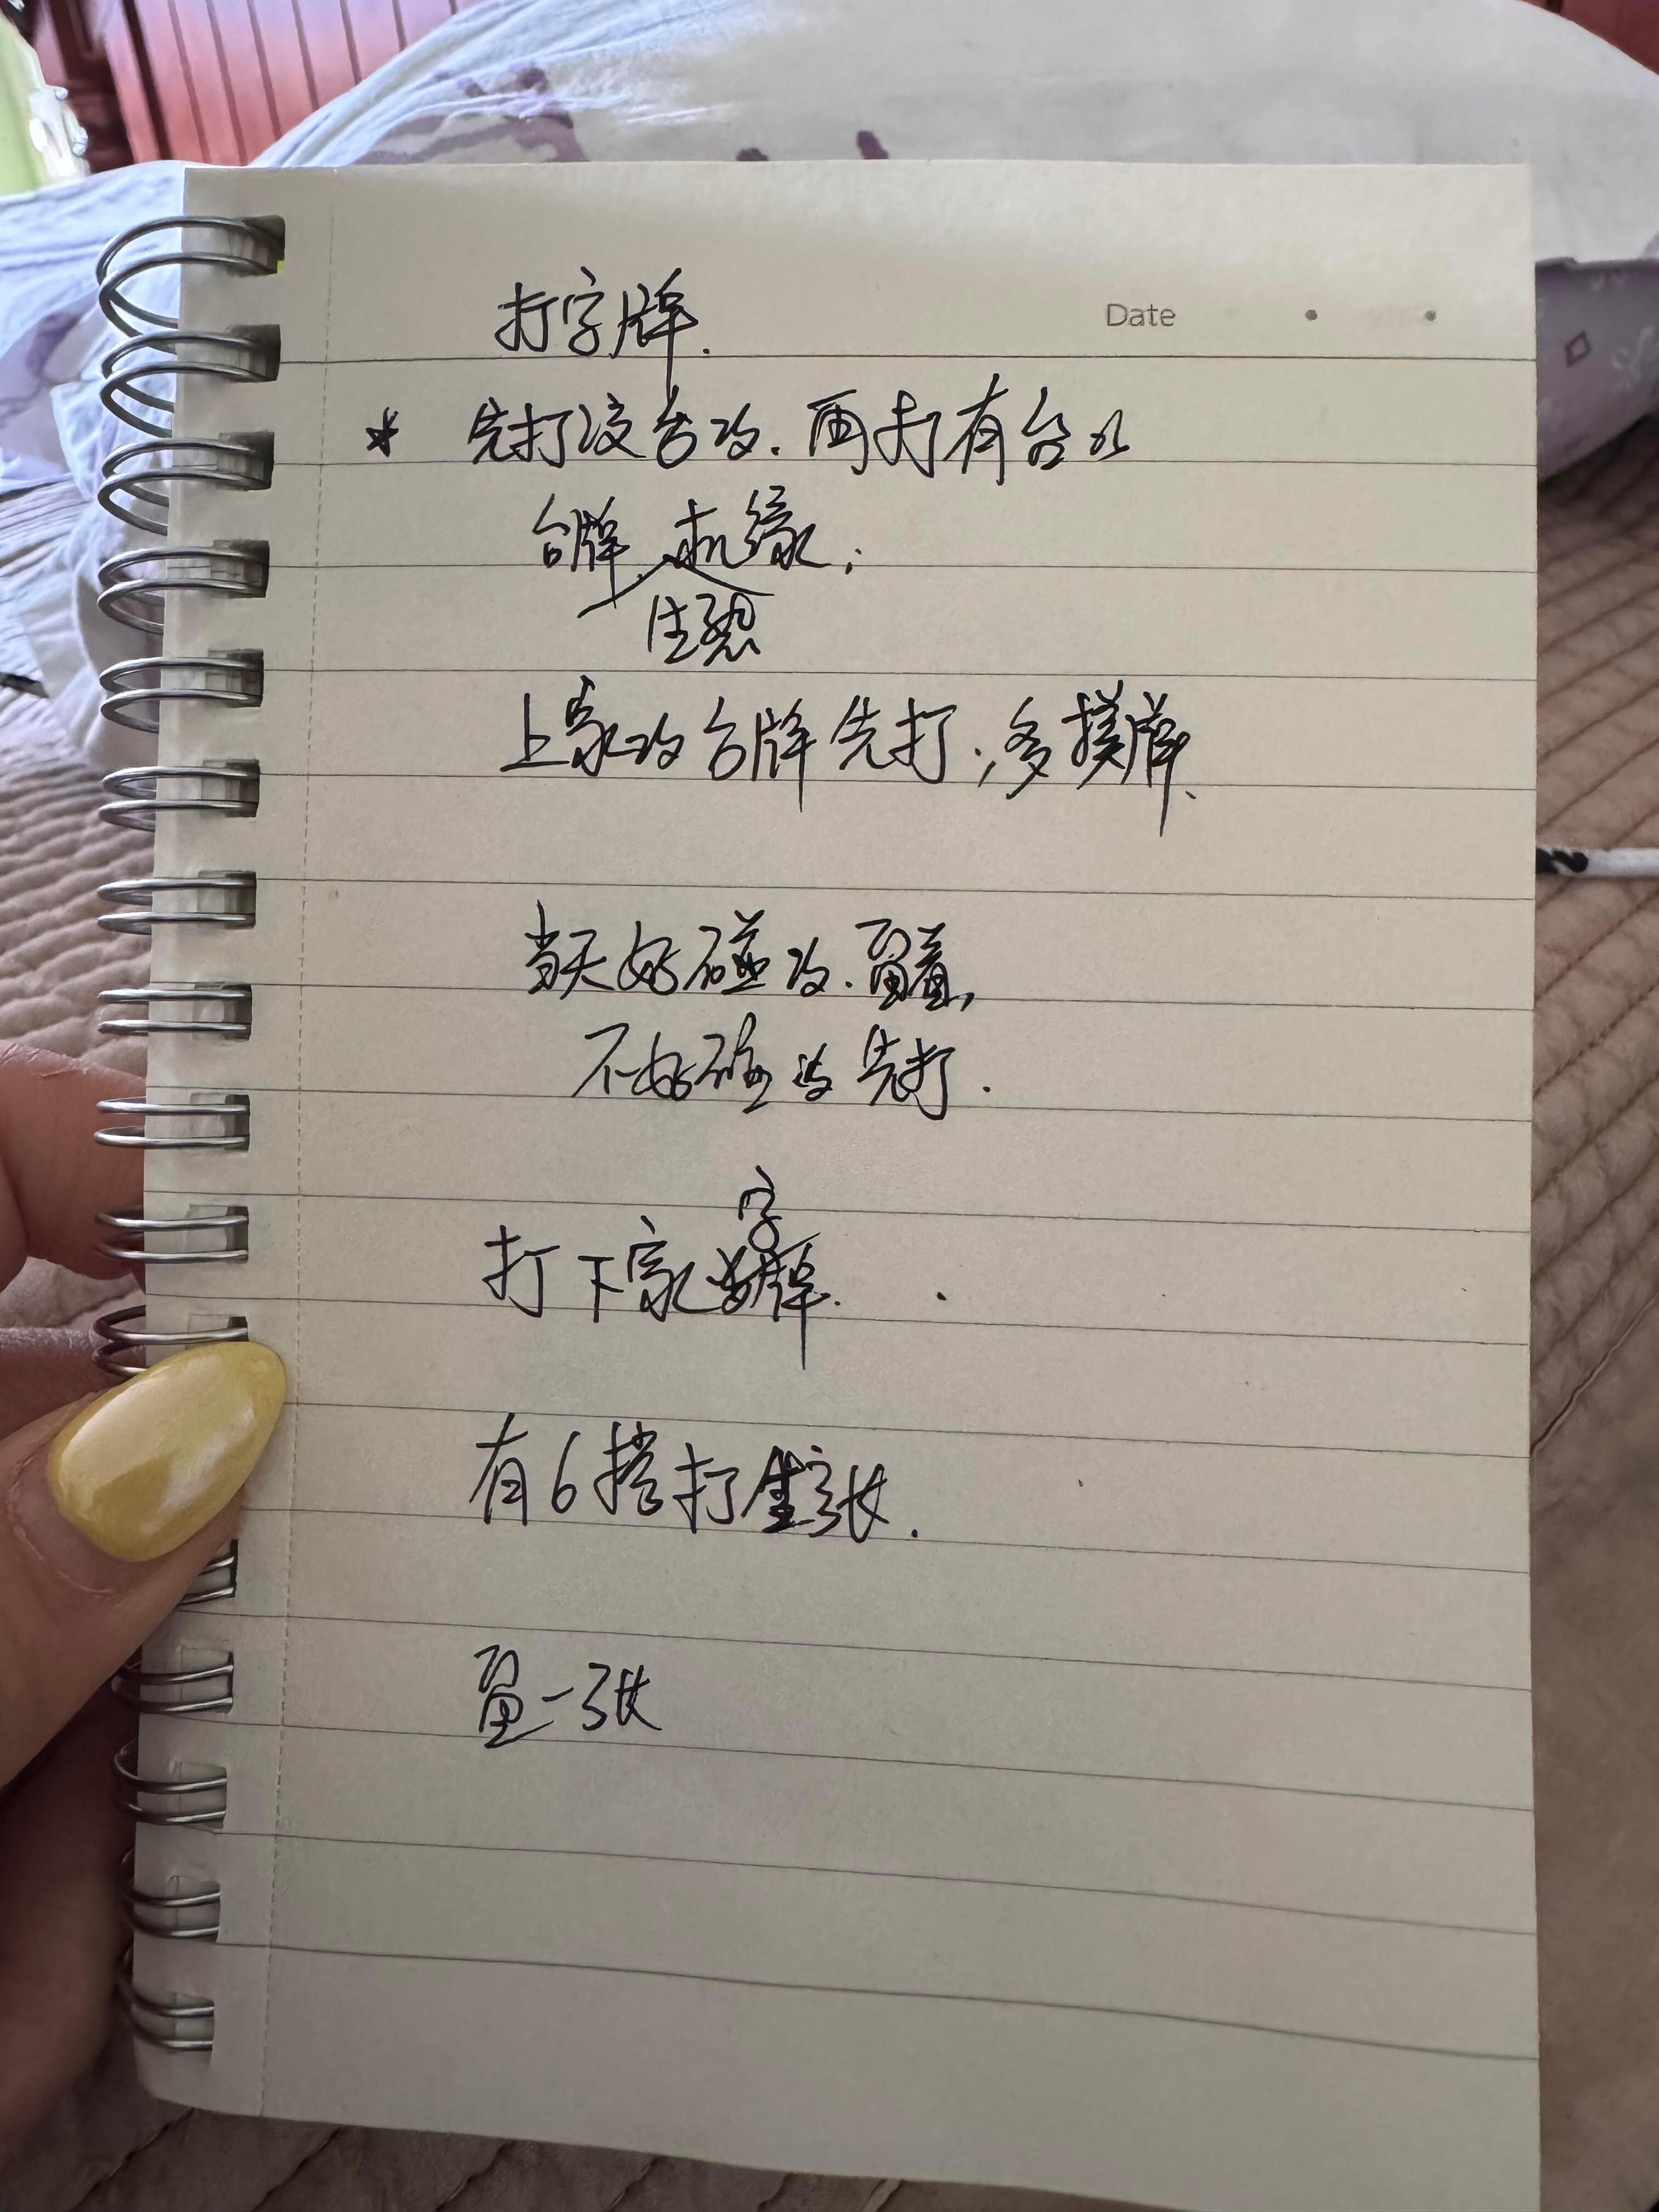 打字牌.
Date
* 先打没台的.再打有台的
台牌.机缘;
生熟
上家的台牌先打.,多摸牌.
当天好碰的.留着,
不好碰的先打.
字
打下家的牌.
有6搭打生张.
留一张